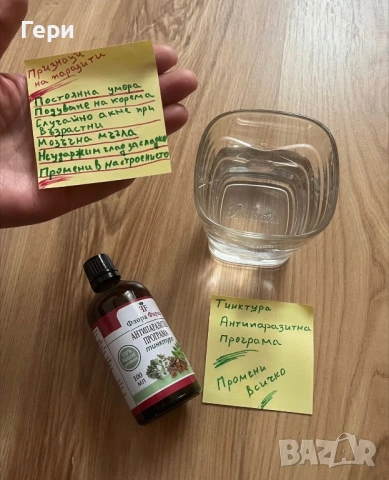 Гери
Признаци
на паразити
Постоянна умора
Подуване на корема
Случайно акне при
възрастни
Мозъчна мъгла
Неудържим глад за сладко
Промени в настроението
Флора Фарм
АНТИПАРАЗИТНА
ПРОГРАМА
тинктура
100 мл
Тинктура
Антипаразитна
Програма
Промени
всичко
BAZAR